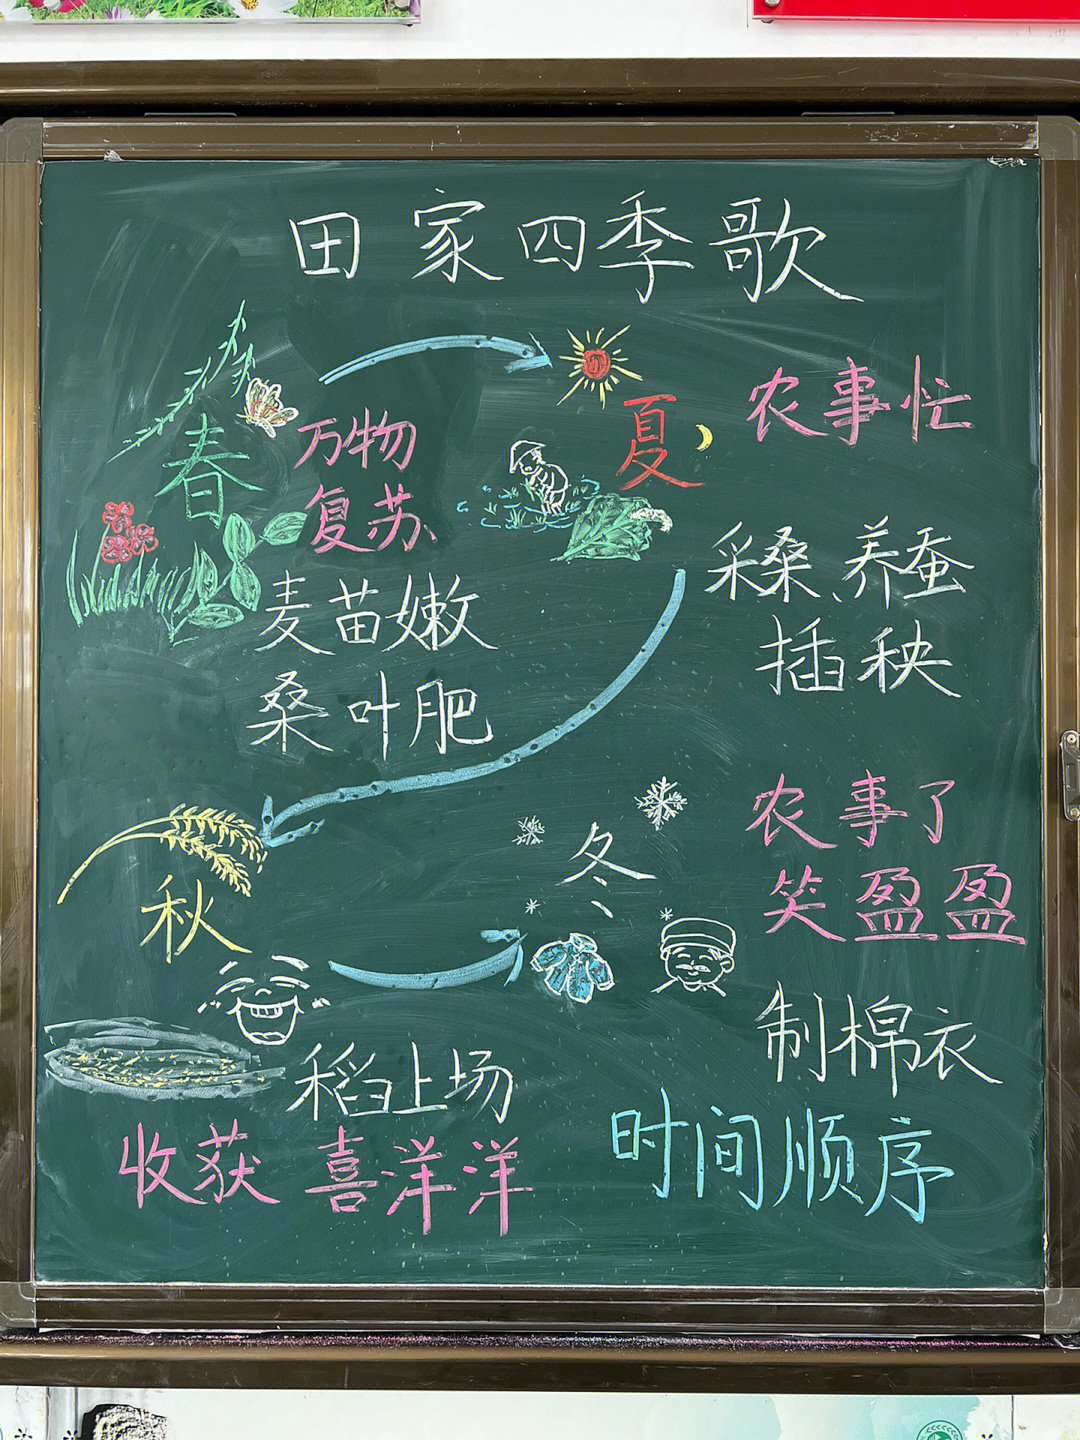 田家四季歌
春
万物
复苏
麦苗嫩
桑叶肥
夏
农事忙
采桑、养蚕
插秧
秋
稻上场
收获 喜洋洋
冬
农事了
笑盈盈
制棉衣
时间顺序